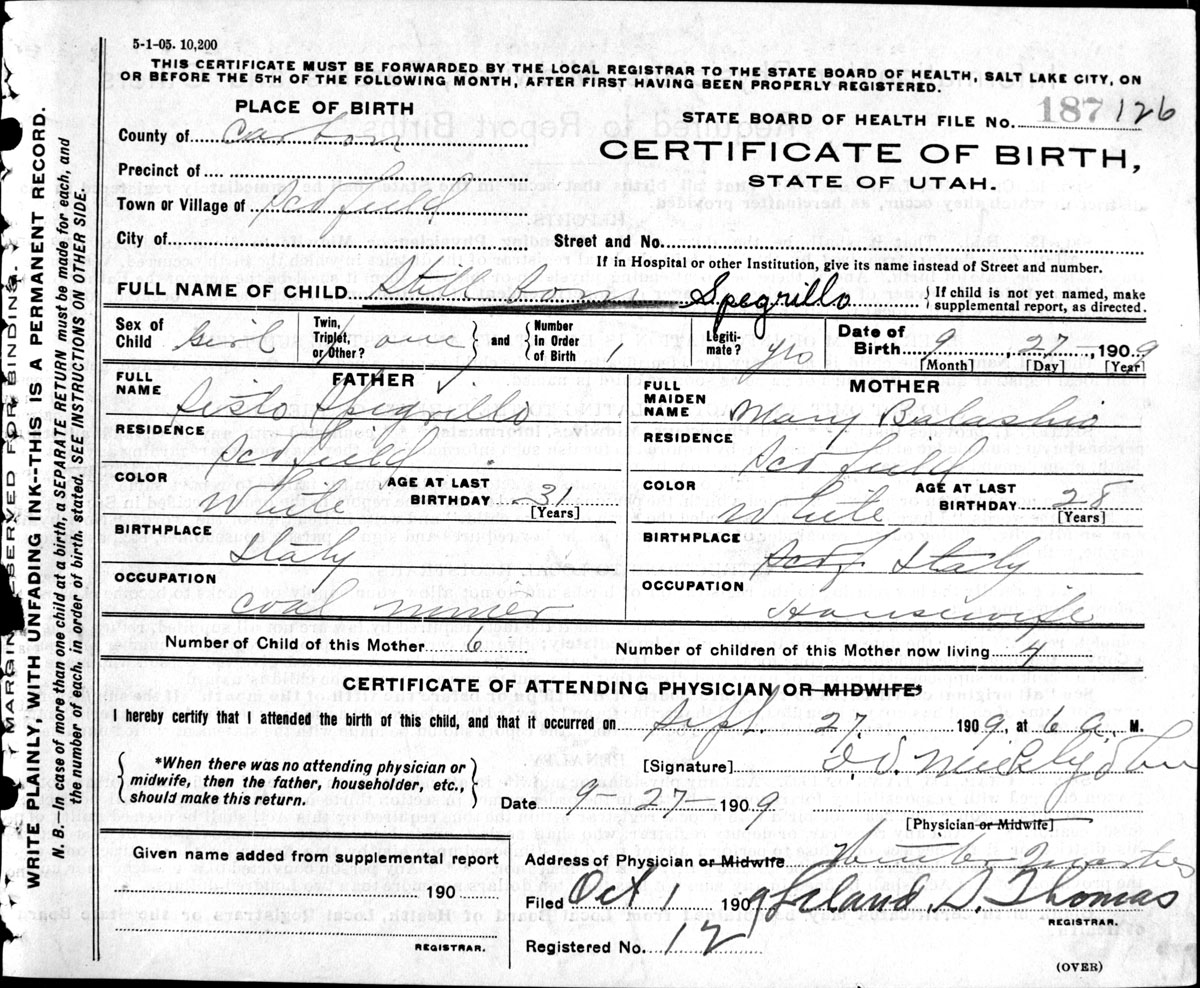 5-1-05. 10,200
THIS CERTIFICATE MUST BE FORWARDED BY THE LOCAL REGISTRAR TO THE STATE BOARD OF HEALTH, SALT LAKE CITY, ON
OR BEFORE THE 5TH OF THE FOLLOWING MONTH, AFTER FIRST HAVING BEEN PROPERLY REGISTERED.
MARGIN RESERVED FOR BINDING.
WRITE PLAINLY, WITH UNFADING INK--THIS IS A PERMANENT RECORD.
N. B. In case of more than one child at a birth, a SEPARATE RETURN must be made for each, and
the number of each, in order of birth, stated. SEE INSTRUCTIONS ON OTHER SIDE.
PLACE OF BIRTH
STATE BOARD OF HEALTH FILE No. 187 126
County of Carbon
CERTIFICATE OF BIRTH,
STATE OF UTAH.
Precinct of
Town or Village of Scofield
City of Street and No.
If in Hospital or other Institution, give its name instead of Street and number.
FULL NAME OF CHILD Still born Spegrillo { If child is not yet named, make
supplemental report, as directed.
Sex of Child Twin, Triplet, or Other? one } and { Number in Order of Birth 1 Legiti-mate? yes Date of Birth 9 27, 1909
[Month] [Day] [Year]
FATHER
FULL NAME Sisto Spegrillo
RESIDENCE Scofield
COLOR White AGE AT LAST BIRTHDAY 31 [Years]
BIRTHPLACE Italy
OCCUPATION Coal miner
MOTHER
FULL MAIDEN NAME Mary
RESIDENCE Scofield
COLOR White AGE AT LAST BIRTHDAY 28 [Years]
BIRTHPLACE Italy
OCCUPATION Housewife
Number of Child of this Mother 6 Number of children of this Mother now living 4
CERTIFICATE OF ATTENDING PHYSICIAN OR MIDWIFE*
I hereby certify that I attended the birth of this child, and that it occurred on Sept. 27, 1909, at 6 a. M.
{ *When there was no attending physician or
midwife, then the father, householder, etc.,
should make this return. }
[Signature]
Date 9-27-1909
[Physician or Midwife]
Given name added from supplemental report
190
REGISTRAR.
Address of Physician or Midwife Winter Quarters
Filed Oct 1 1909 Leland S. Thomas
REGISTRAR.
Registered No. 12
(OVER)